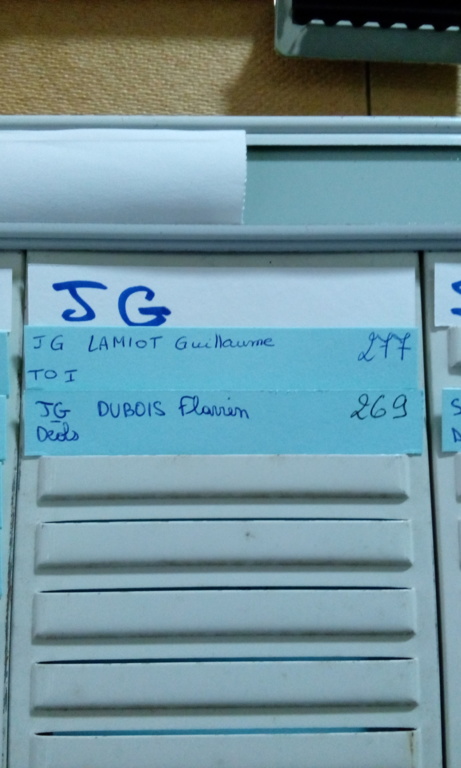 JG
JG LAMIOT Guillaume 277
TOI
JG DUBOIS Flavien 269
Déols